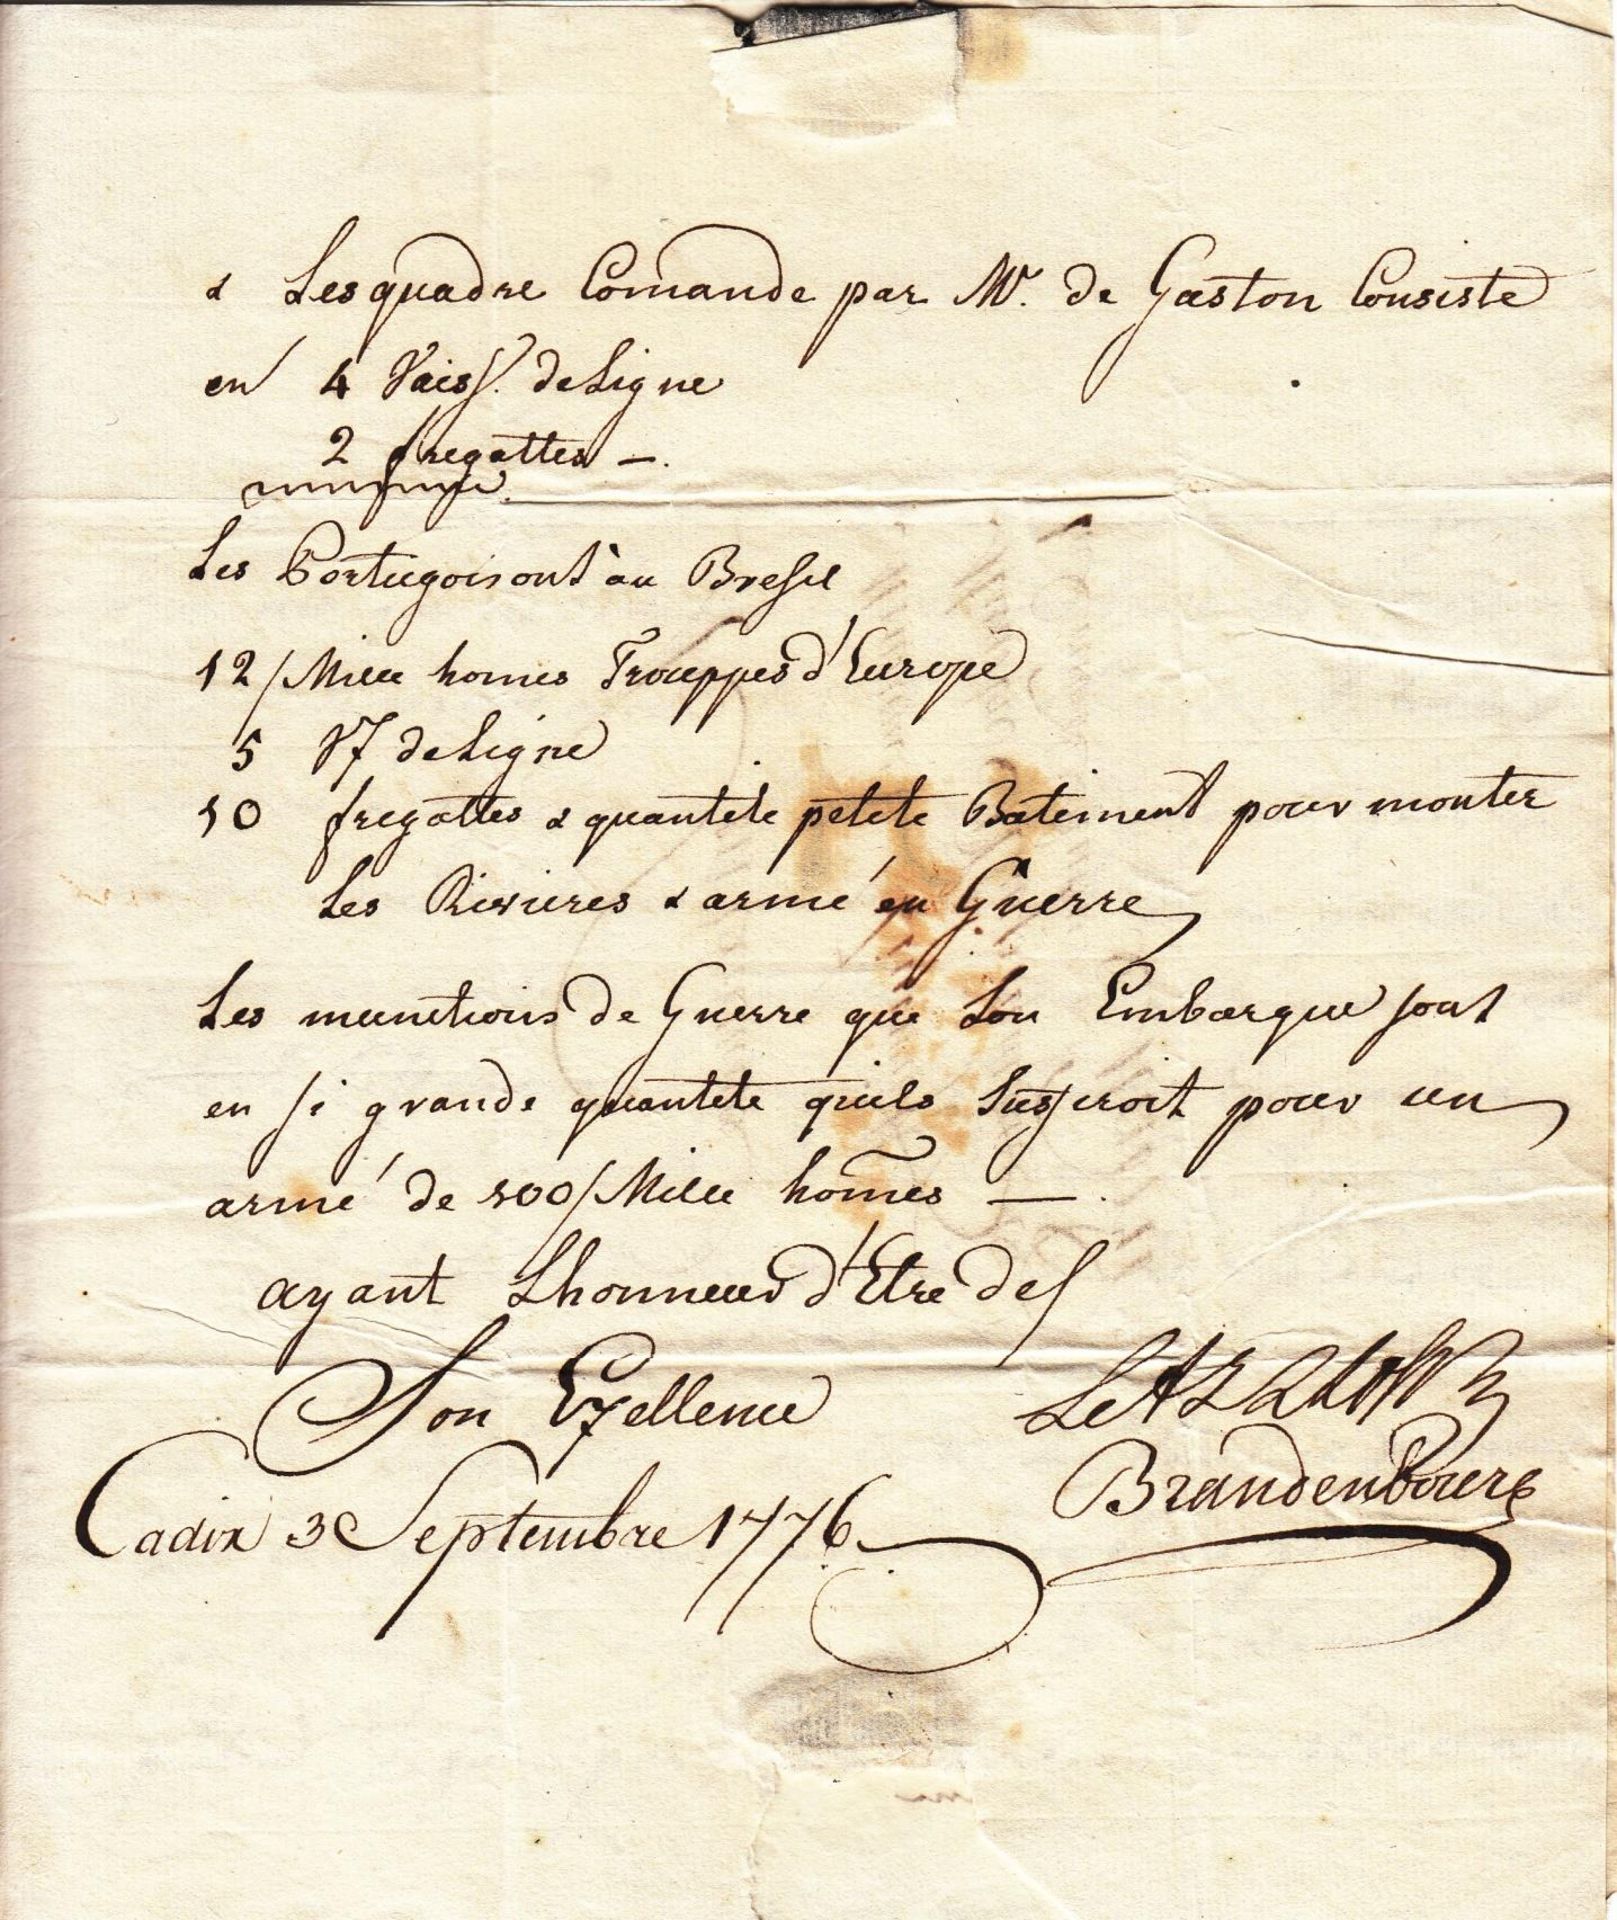 & Lesquadre Comande par Mr. de Gaston Consiste
en 4 Vaiss. de Ligne
2 fregattes —.
Les Portugois ont àu Bresil
12/Mille homes Trouppes d'Europe
5 Vx de Ligne
10 fregattes & quantite petite Batiment pour monter
Les Rivieres & armé en Guerre
Les munitions de Guerre que Lon Embarque sont
en si grande quantete quils Susfiroit pour un
armé de 100/Mille hom̃es —.
ayant Lhonneur d'Etre de
Son Exellence
Brandenbourg
Cadix 3 Septembre 1776